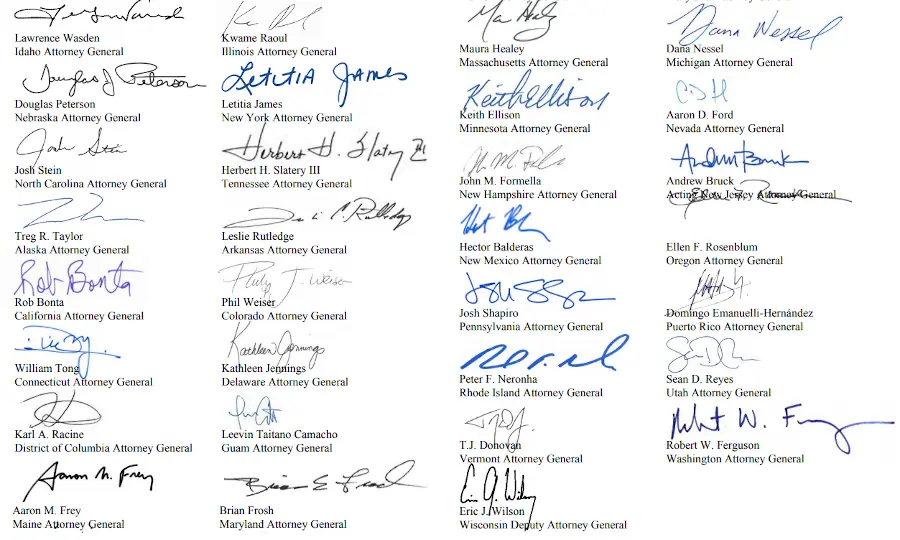 Lawrence Wasden
Idaho Attorney General
Douglas J Peterson
Douglas Peterson
Nebraska Attorney General
Josh Stein
Josh Stein
North Carolina Attorney General
Treg R. Taylor
Alaska Attorney General
Rob Bonta
Rob Bonta
California Attorney General
William Tong
Connecticut Attorney General
Karl A. Racine
District of Columbia Attorney General
Aaron M. Frey
Aaron M. Frey
Maine Attorney General
Kwame Raoul
Illinois Attorney General
Letitia James
Letitia James
New York Attorney General
Herbert H. Slatery III
Herbert H. Slatery III
Tennessee Attorney General
Leslie Rutledge
Arkansas Attorney General
Philip J. Weiser
Phil Weiser
Colorado Attorney General
Kathleen Jennings
Kathleen Jennings
Delaware Attorney General
Leevin Taitano Camacho
Guam Attorney General
Brian E Frosh
Brian Frosh
Maryland Attorney General
Maura Healey
Maura Healey
Massachusetts Attorney General
Keith Ellison
Keith Ellison
Minnesota Attorney General
John M. Formella
New Hampshire Attorney General
Hector Balderas
New Mexico Attorney General
Josh Shapiro
Pennsylvania Attorney General
Peter F. Neronha
Rhode Island Attorney General
T.J. Donovan
Vermont Attorney General
Eric J. Wilson
Wisconsin Deputy Attorney General
Dana Nessel
Dana Nessel
Michigan Attorney General
Aaron D. Ford
Nevada Attorney General
Andrew Bruck
Andrew Bruck
Acting New Jersey Attorney General
Ellen F. Rosenblum
Oregon Attorney General
Domingo Emanuelli-Hernández
Puerto Rico Attorney General
Sean D. Reyes
Utah Attorney General
Robert W. Ferguson
Washington Attorney General